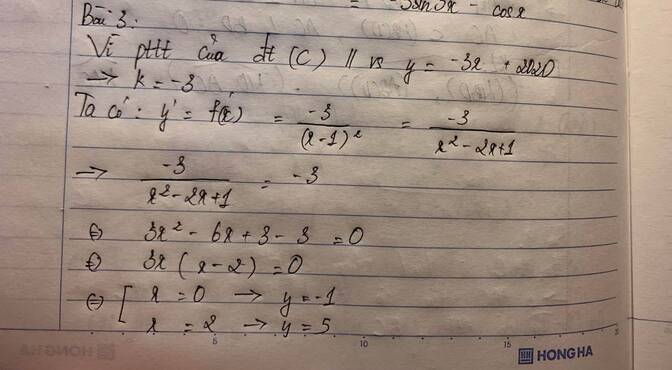 = -3sin3x - cosx
Bài 3:
Vì pttt của đt (C) // vs y = -3x + 2020
→ k = -3
Ta có: y' = f'(x) = -3/(x-1)² = -3/(x² - 2x + 1)
→ -3/(x² - 2x + 1) = -3
⇔ 3x² - 6x + 3 - 3 = 0
⇔ 3x (x - 2) = 0
⇔ [ x = 0 → y = -1
x = 2 → y = 5
5 10 15
HH HONG HA
HONG HA